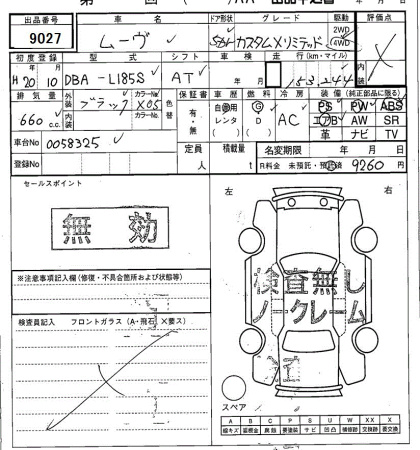 出品番号 車名 ドア形状 グレード 駆動 評価点
9027 ムーヴ 5D カスタムXリミテッド 2WD 4WD
初度登録 型式 シフト 車検 走行(km・マイル) 内装
H20 10 DBA-L185S AT 年 月 153,244
排気量 外装 ブラック カラーNo X05 色替 保証書 車歴 燃料 冷房 装備(純正部品に限る)
660 c.c. 内装 カラーNo 有・無 自家用 レンタ ( ) G D ( ) AC PS PW ABS
エアB AW SR
革 ナビ TV
車台No 0058325 定員 人 積載量 t 名変期限 年 月 日
登録No R料金 未預託・預託済 9260円
セールスポイント 左 右
無効
※注意事項記入欄(修復・不具合箇所および状態等)
検査無し
ノークレーム
検査員記入 フロントガラス(A・飛石 X要ス)
スペア
A B C P S U W XX X
線キズ 要板金 良熱 要塗装 サビ 凹凸 補修跡 交換跡 要交換